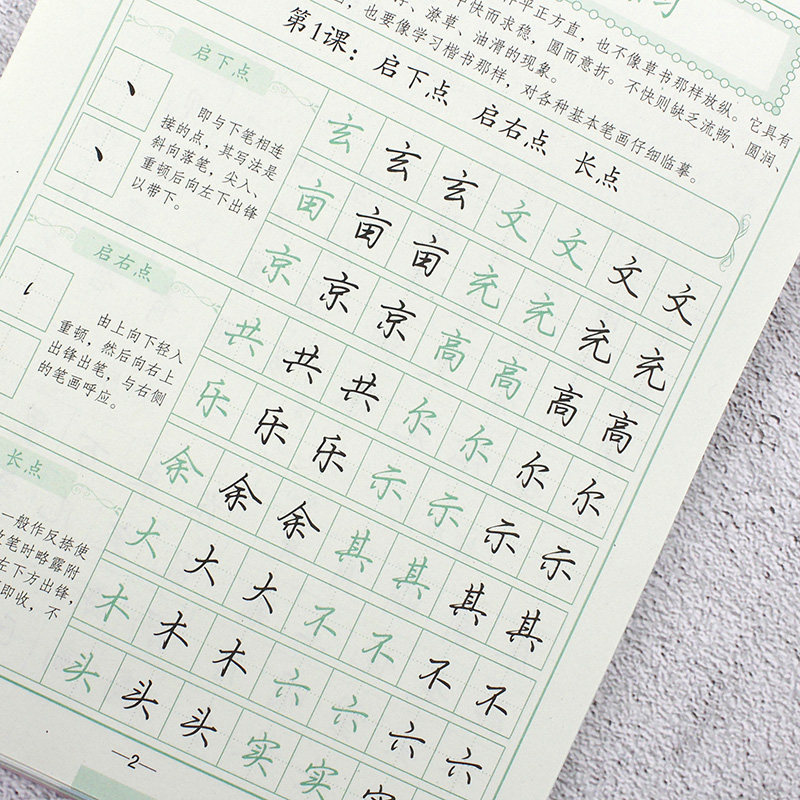 习
平正方直，也不像草书那样放纵。它具有
快而求稳，圆而意折。不快则缺乏流畅、圆润、
、潦草、油滑的现象。
，也要像学习楷书那样，对各种基本笔画仔细临摹。
第1课：启下点 启右点 长点
启下点
即与下笔相连
接的点，其写法是
斜向落笔，尖入、
重顿后向左下出锋
以带下。
玄玄玄文文文文
亩亩亩充充充充
京京京高高高高
启右点
由上向下轻入
重顿，然后向右上
出锋出笔，与右侧
的笔画呼应。
共共共尔尔尔尔
乐乐乐示示示示
余余余其其其其
长点
一般作反捺使
笔时略露附
左下方出锋，
即收，不
大大大不不不不
木木木六六六六
头头头实实实
—2—